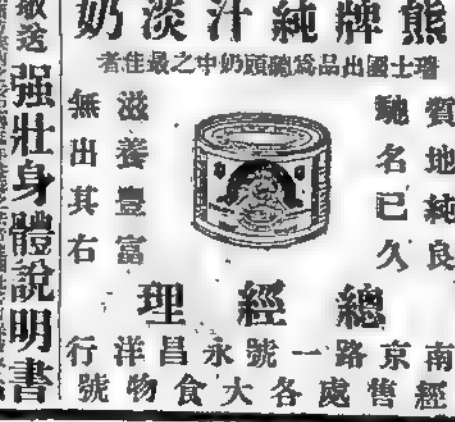 熊牌純汁淡奶
瑞士國出品爲罐頭奶中之最佳者
質地純良
馳名已久
滋養豐富
無出其右
總經理
南京路一號永昌洋行
經售處各大食物號
敬送强壯身體說明書